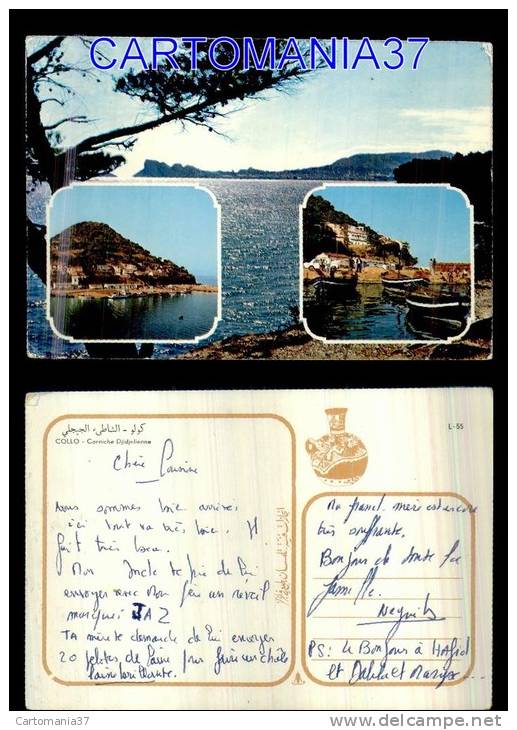 CARTOMANIA37
كولو - الشاطىء الجيجلي
COLLO - Corniche Djidjelienne
L-55
Chère Cousine
Nous sommes bien arrivés
ici tout va très bien. Il
fait très beau.
Mon oncle te prie de lui
envoyer avec mon père un réveil
marque: JAZ
TA mère te demande de lui envoyer
20 pelotes de laine pour faire un châle
laine brillante.
Ma grand-mère est encore
très souffrante.
Bonjour de toute la
famille.
PS: le Bonjour à HAFid
et Dalila et
Cartomania37
Cartomania37